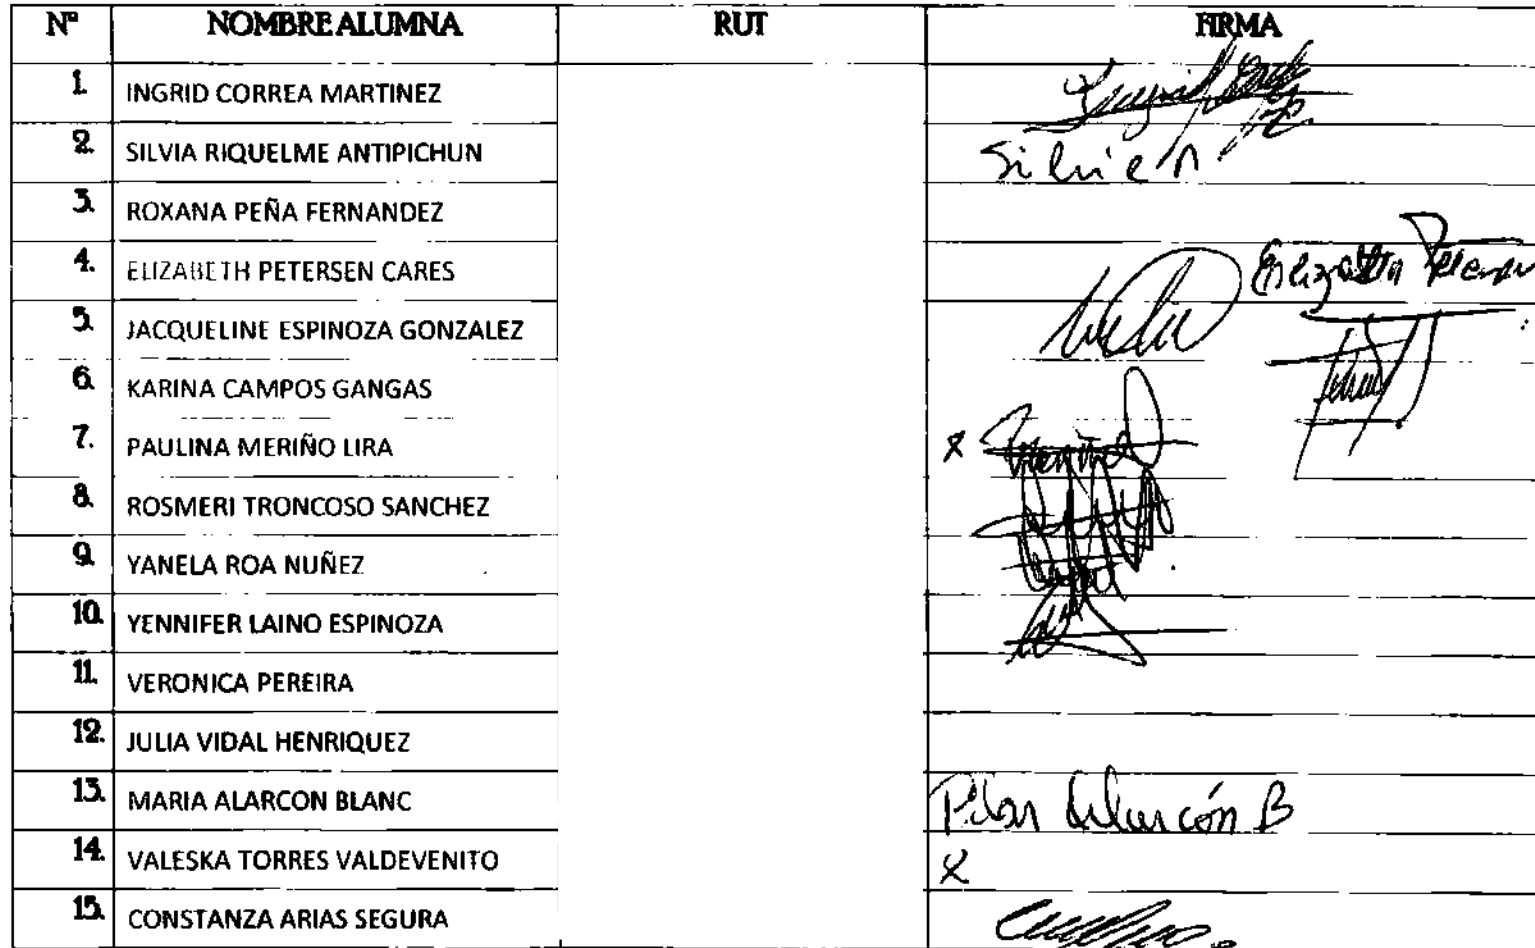 N° NOMBRE ALUMNA RUT FIRMA
1. INGRID CORREA MARTINEZ
2. SILVIA RIQUELME ANTIPICHUN Silvia R
3. ROXANA PEÑA FERNANDEZ
4. ELIZABETH PETERSEN CARES
5. JACQUELINE ESPINOZA GONZALEZ
6. KARINA CAMPOS GANGAS
7. PAULINA MERIÑO LIRA x
8. ROSMERI TRONCOSO SANCHEZ
9. YANELA ROA NUÑEZ
10. YENNIFER LAINO ESPINOZA
11. VERONICA PEREIRA
12. JULIA VIDAL HENRIQUEZ
13. MARIA ALARCON BLANC Pilar Alarcón B
14. VALESKA TORRES VALDEVENITO x
15. CONSTANZA ARIAS SEGURA